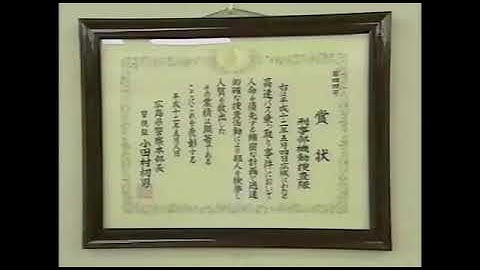 賞状
刑事部機動捜査隊
右は平成十二年五月四日広域にわたる
高速バス乗っ取り事件において
人命を優先する綿密な計画と迅速
的確な捜査活動により犯人を検挙し
人質を救出した
その業績は顕著である
ここにこれを表彰する
平成十二年五月八日
広島県警察本部長
警視監 小田村初男